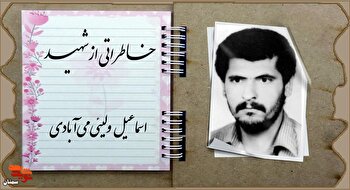 خاطراتی از شهید
اسماعیل ولینی می‌آبادی
سمنان